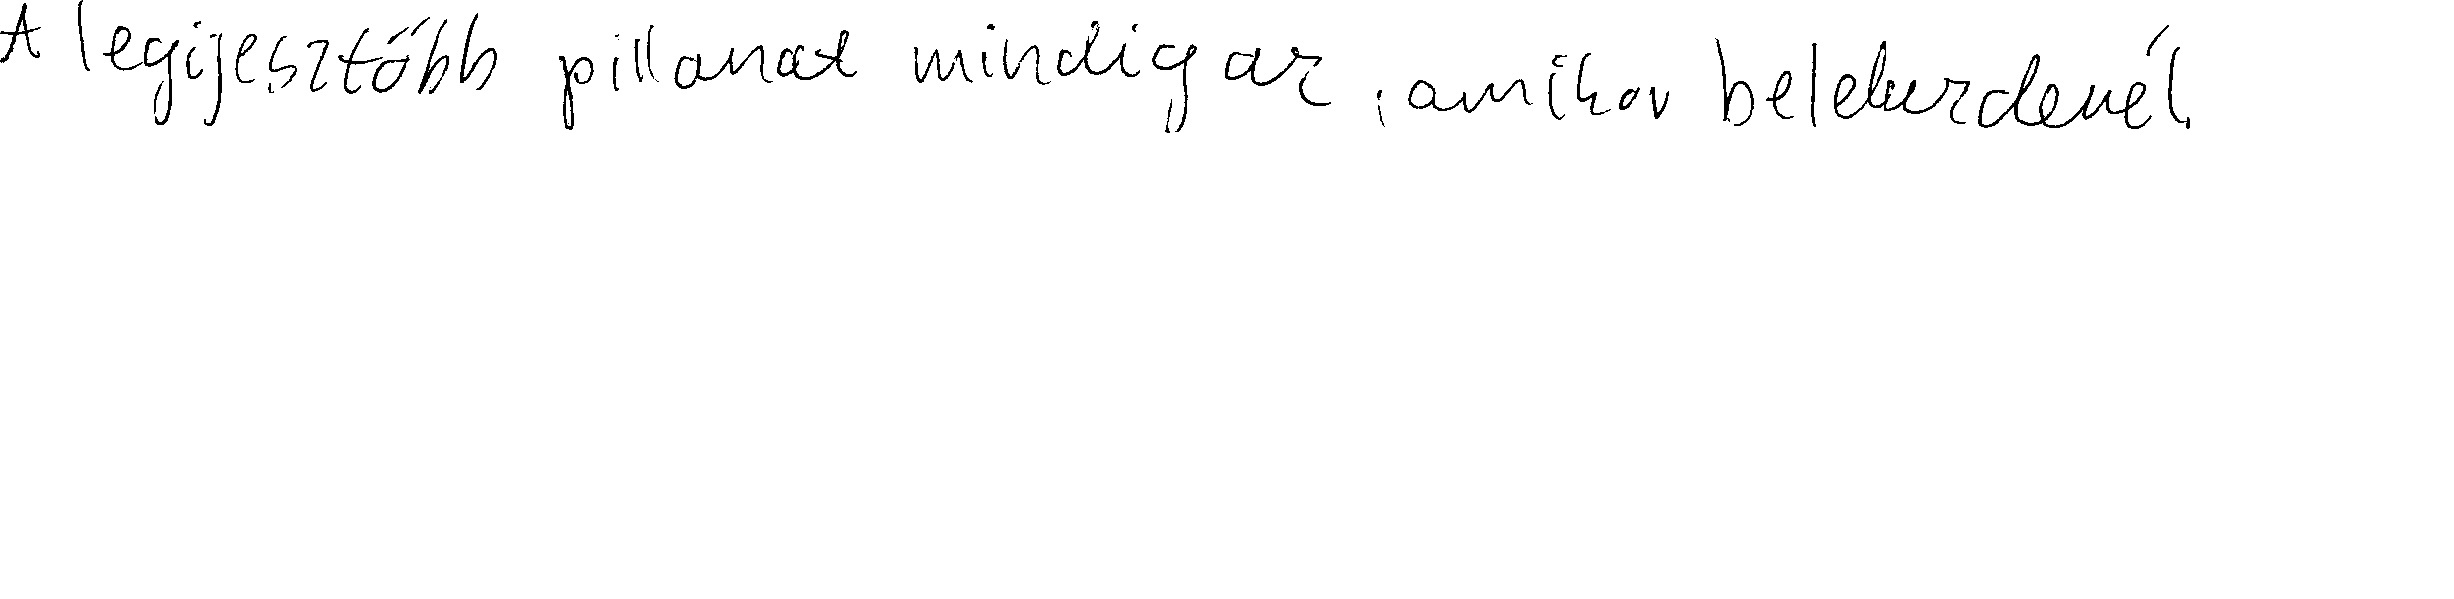 A legijesztőbb pillanat mindig az, amikor belekezdenél.